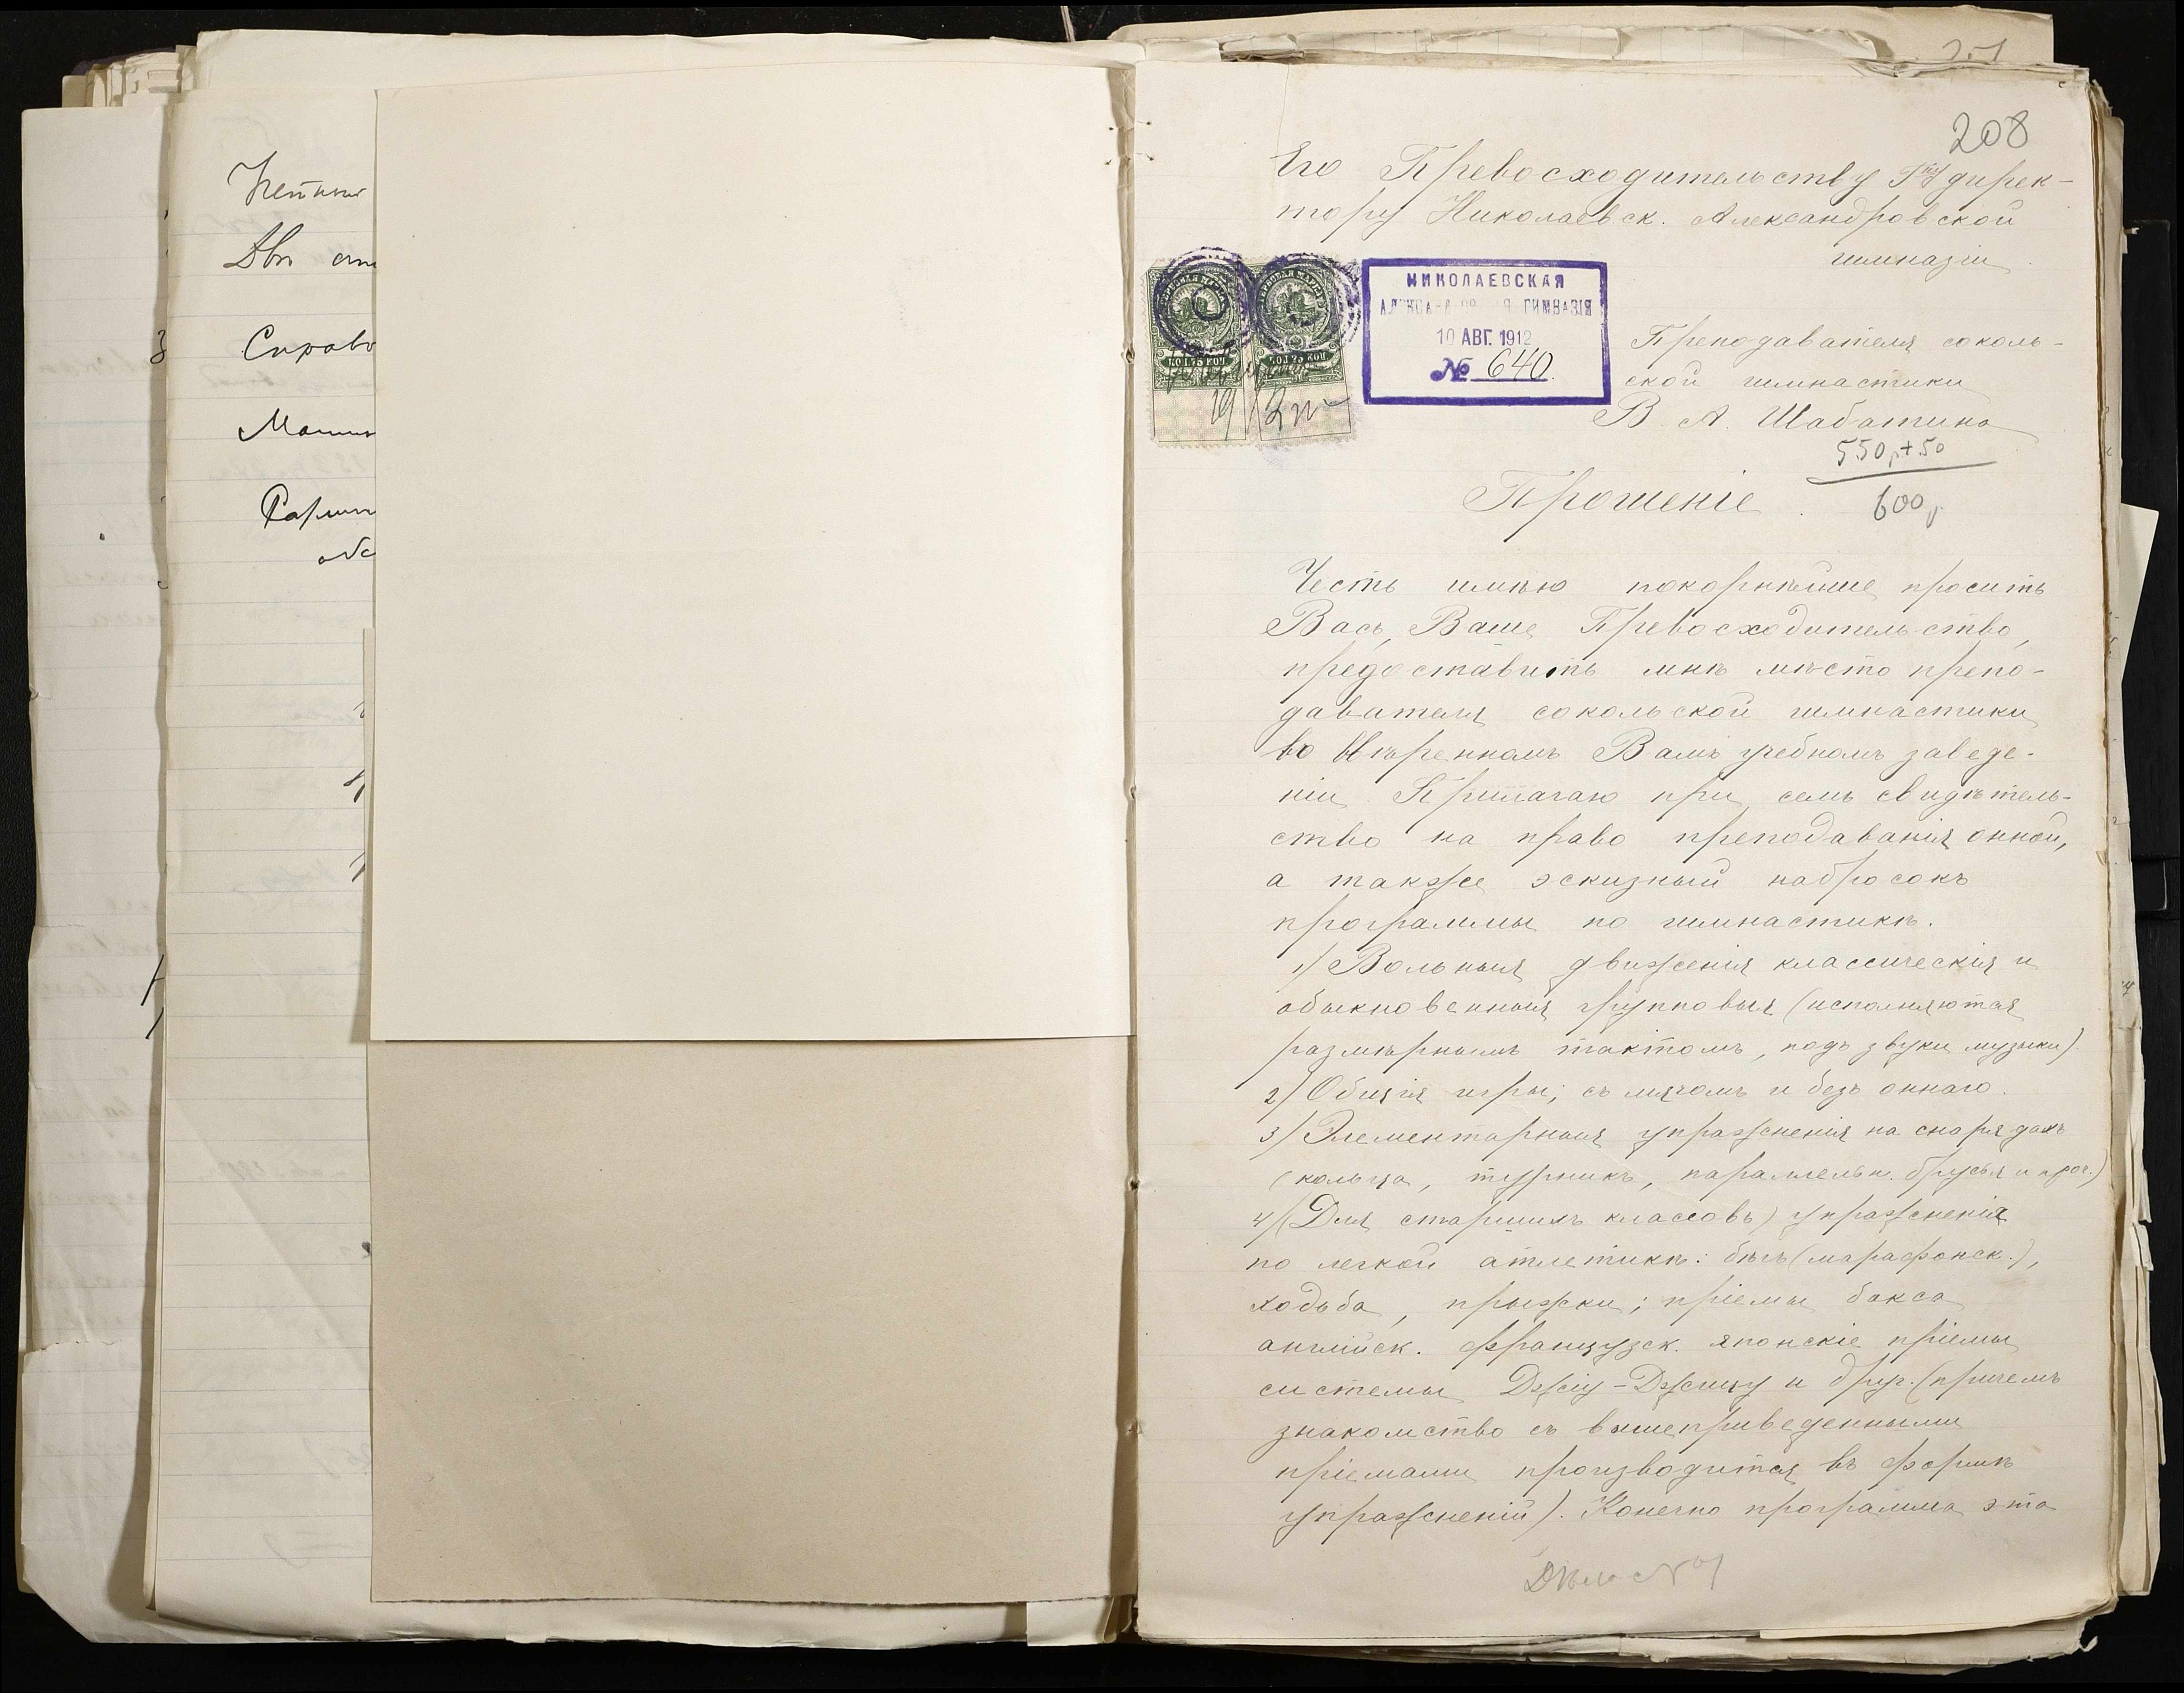 208
Его Превосходительству Гну дирек-
тору Николаевск. Александровской
гимназіи
НИКОЛАЕВСКАЯ
ГИМНАЗІЯ
10 АВГ. 1912
№ 640.
75 КОП
75 КОП
Преподавателя соколь-
ской гимнастики
В. А. Шабатина
550р+50
600р
Прошеніе.
Честь имѣю покорнѣйше просить
Васъ, Ваше Превосходительство,
предоставить мнѣ мѣсто препо-
давателя сокольской гимнастики
во ввѣренномъ Вамъ учебномъ заведе-
ніи. Прилагаю при семъ свидѣтель-
ство на право преподаванія онной,
а также эскизный набросокъ
программы по гимнастикѣ.
1/ Вольныя движенія классическія и
обыкновенныя групповыя (исполняются
размѣрнымъ тактомъ, подъ звуки музыки).
2/ Общія игры; съ мячомъ и безъ оннаго.
3/ Элементарныя упражненія на снарядахъ
(кольца, турникъ, параллельн. брусья и проч.)
4/ (Для старшихъ классовъ) упражненія
по легкой атлетикѣ: бѣгъ (марафонск.),
ходьба, прыжки; пріемы бокса
англійск. французск. японскіе пріемы
системы Джіу-Джицу и друг. (причемъ
знакомство съ вышеприведенными
пріемами производится въ формѣ
упражненій). Конечно программа эта
Справо